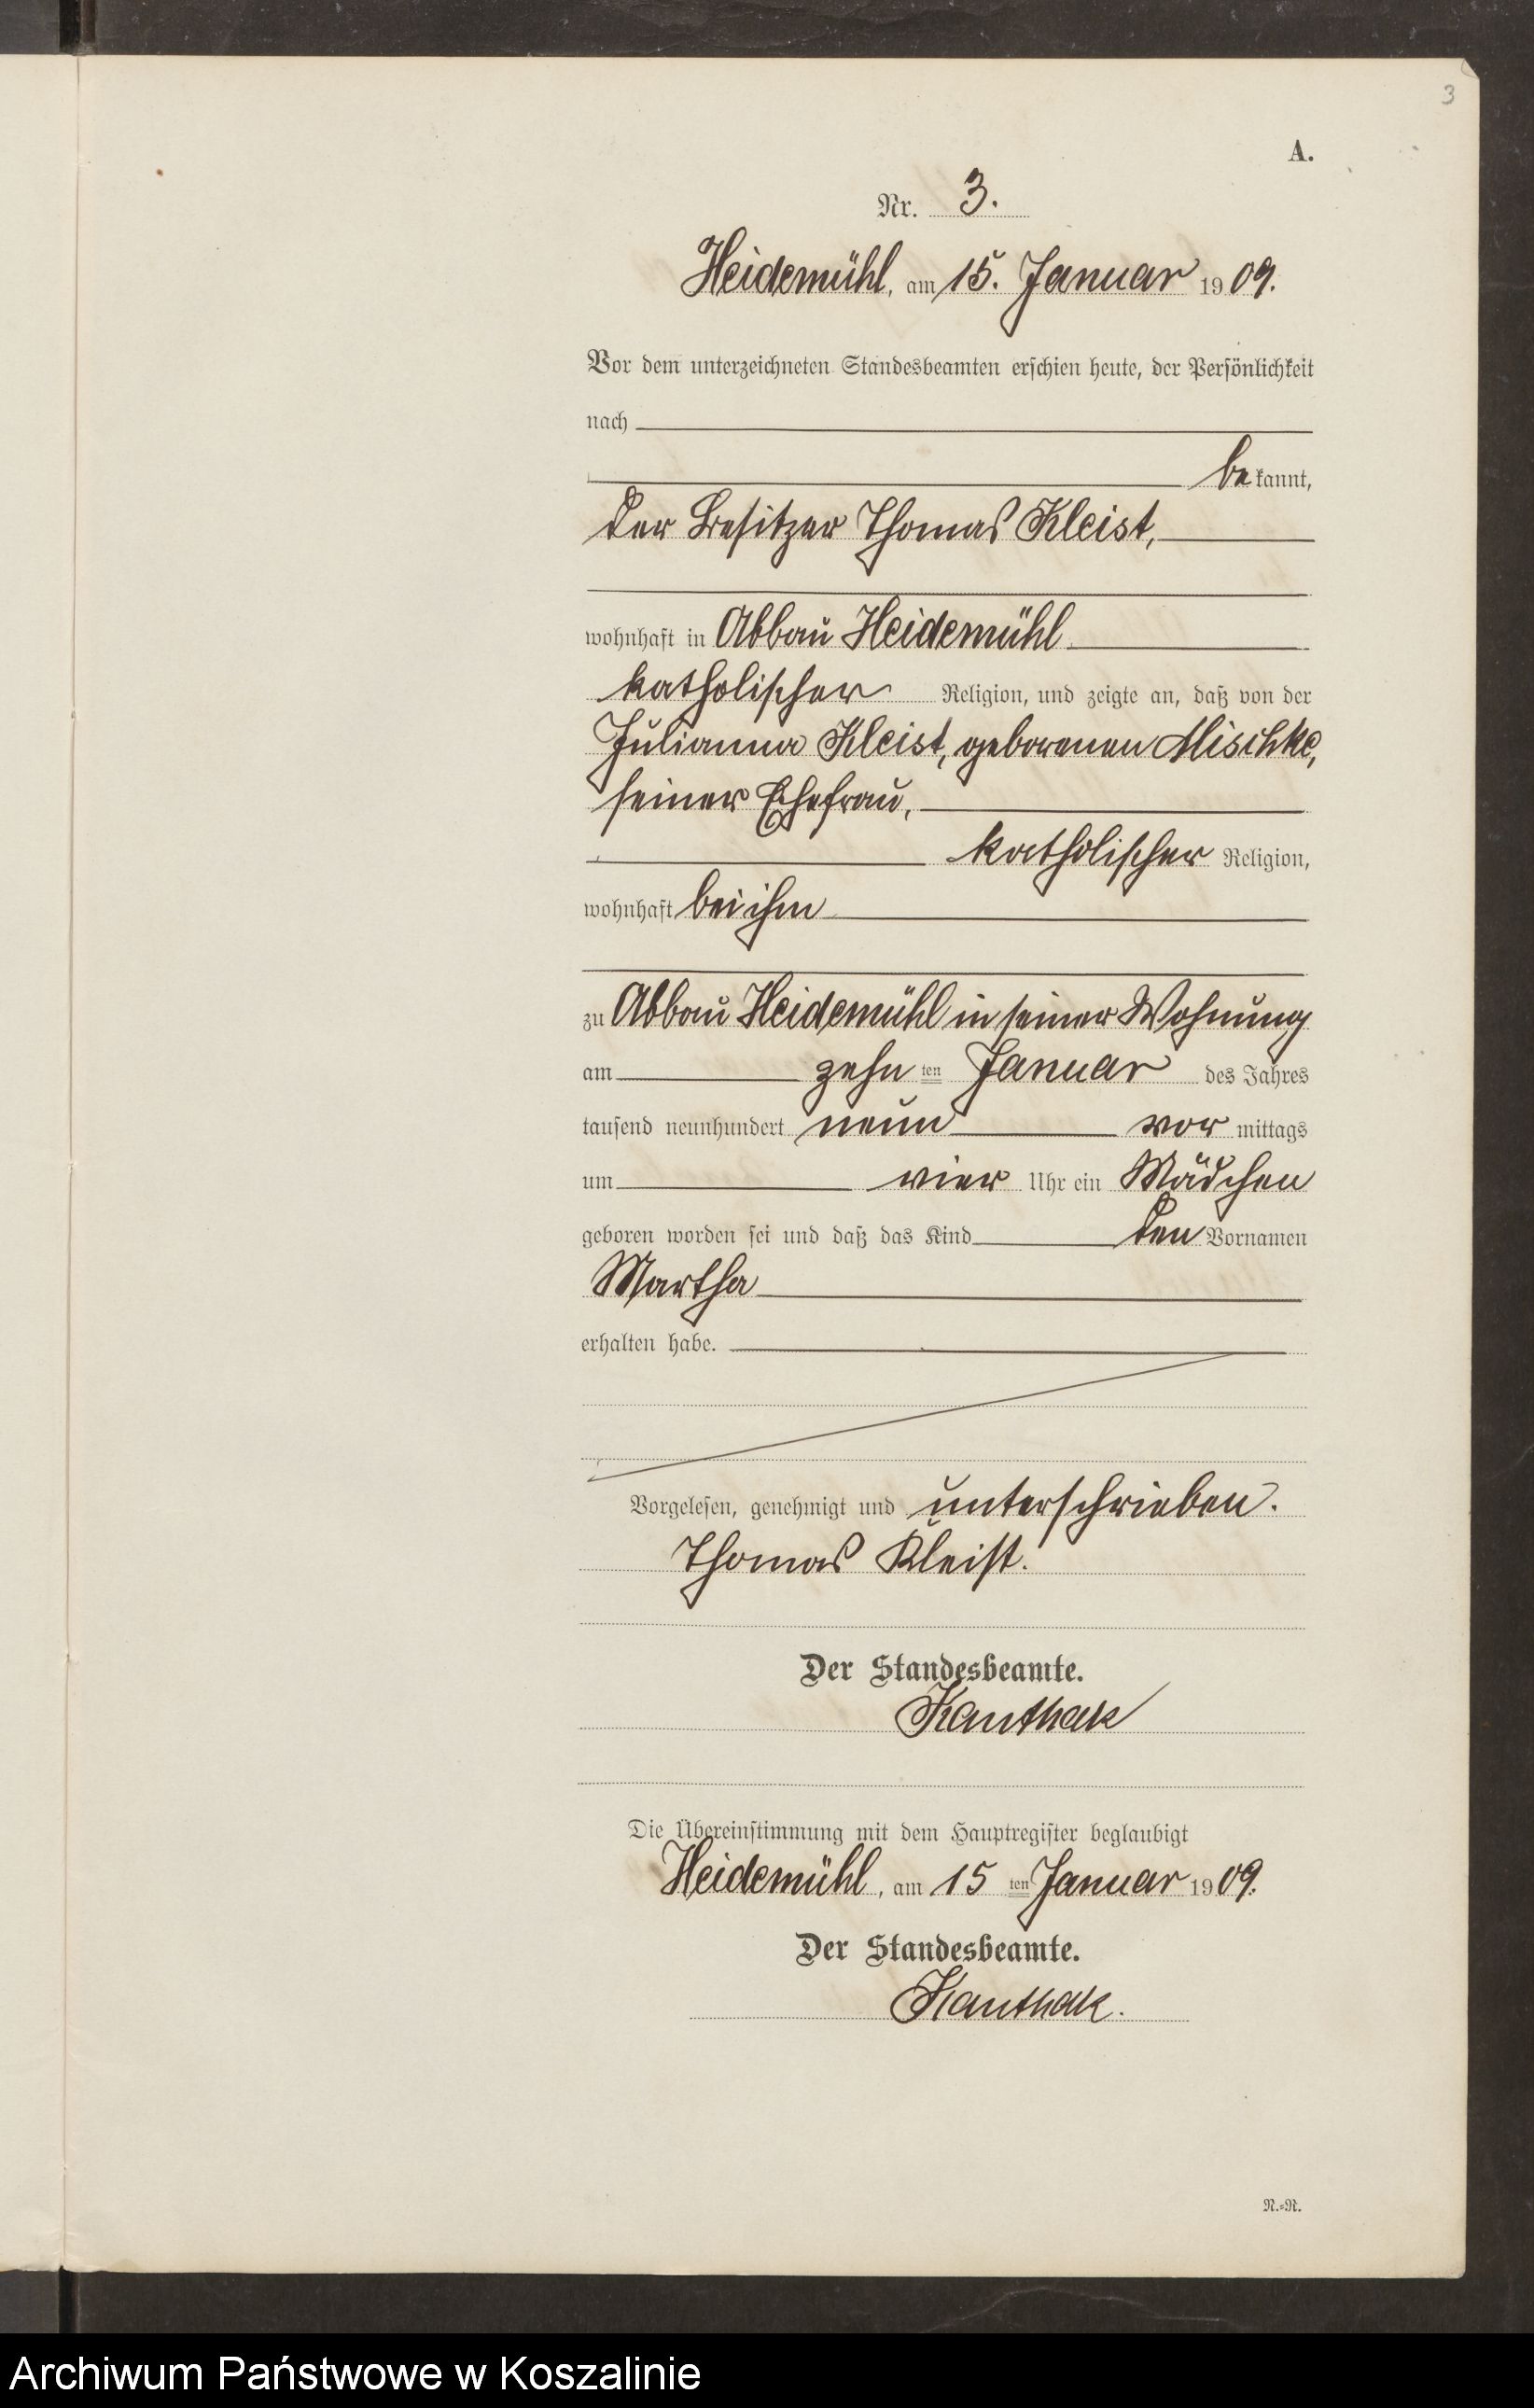 3
A.
Nr. 3.
Heidemühl, am 15. Januar 1909.
Vor dem unterzeichneten Standesbeamten erschien heute, der Persönlichkeit
nach
bekannt,
der Besitzer Thomas Kleist,
wohnhaft in Abbau Heidemühl
katholischer Religion, und zeigte an, daß von der
Julianna Kleist, geborenen Mischke,
seiner Ehefrau,
katholischer Religion,
wohnhaft bei ihm
zu Abbau Heidemühl in seiner Wohnung
am zehn ten Januar des Jahres
tausend neunhundert neun vor mittags
um vier Uhr ein Mädchen
geboren worden sei und daß das Kind den Vornamen
Martha
erhalten habe.
Vorgelesen, genehmigt und unterschrieben.
Thomas Kleist.
Der Standesbeamte.
Kanthak
Die Übereinstimmung mit dem Hauptregister beglaubigt
Heidemühl, am 15 ten Januar 1909.
Der Standesbeamte.
Kanthak.
N.=R.
Archiwum Państwowe w Koszalinie